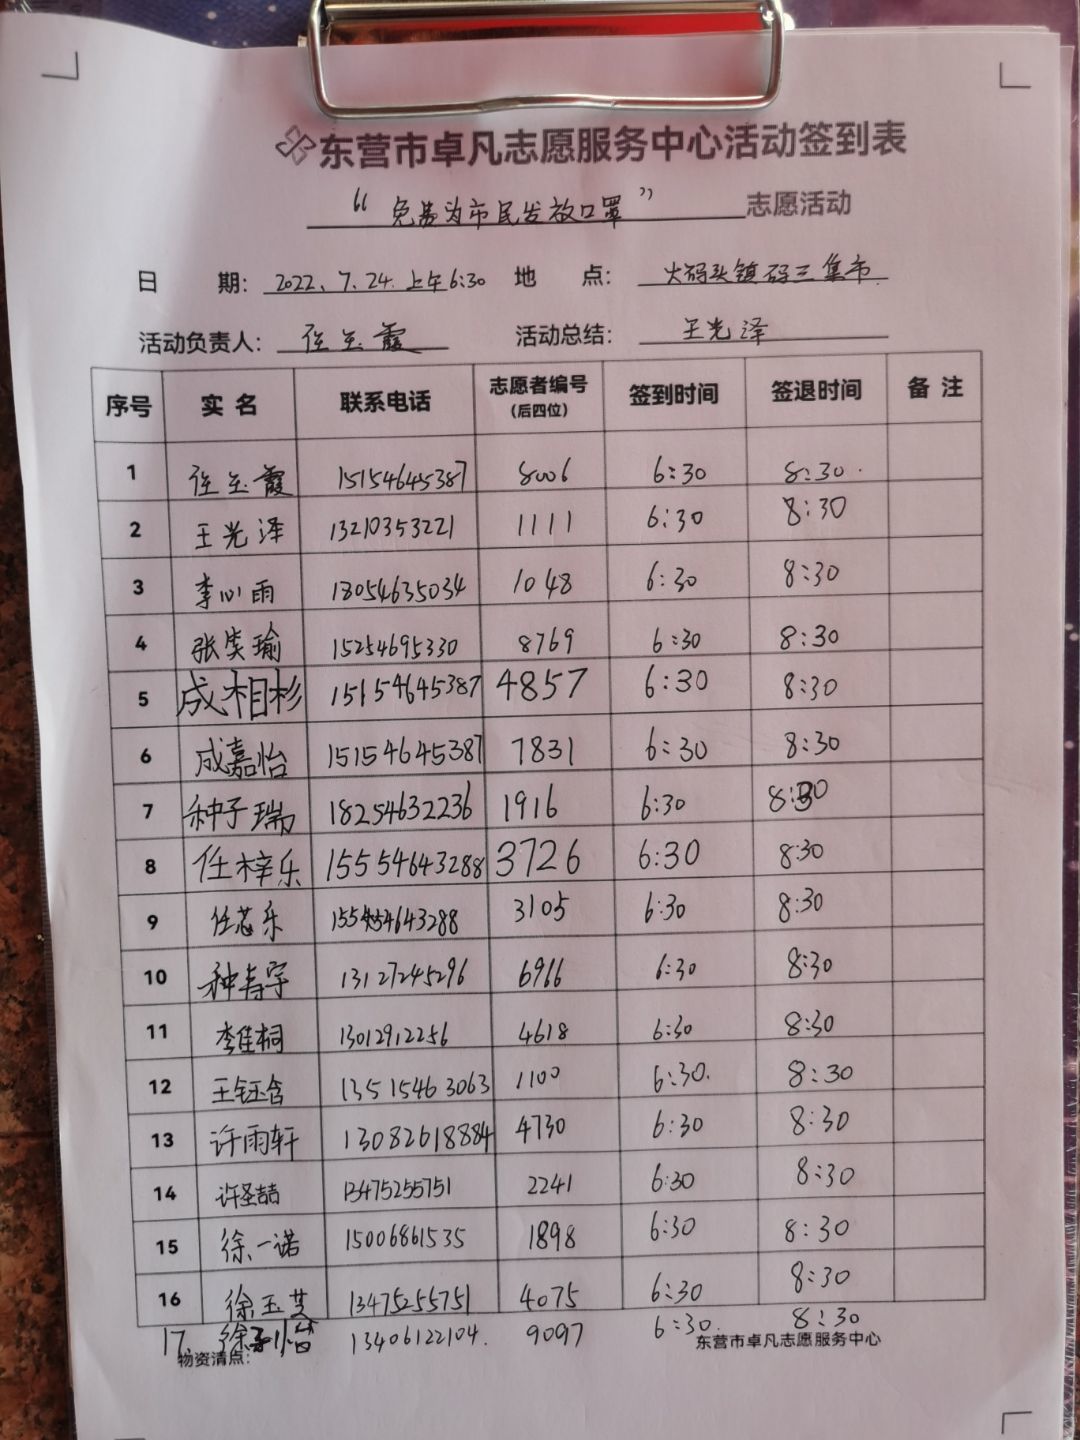 东营市卓凡志愿服务中心活动签到表
“免费为市民发放口罩” 志愿活动
日 期: 2022、7.24.上午6:30 地 点: 大码头镇码三集市
活动负责人: 任玉霞 活动总结: 王光泽
序号 实 名 联系电话 志愿者编号(后四位) 签到时间 签退时间 备 注
1 任玉霞 15154645387 8006 6:30 8:30.
2 王光泽 13210353221 1111 6:30 8:30
3 李心雨 18054635034 1048 6:30 8:30
4 张笑瑜 15254695330 8769 6:30 8:30
5 成相杉 15154645387 4857 6:30 8:30
6 成嘉怡 15154645387 7831 6:30 8:30
7 种子瑞 18254632236 1916 6:30 8:30
8 任梓乐 15554643288 3726 6:30 8:30
9 任芯乐 15554643288 3105 6:30 8:30
10 种春宇 13127245296 6966 6:30 8:30
11 李佳桐 13012912256 4618 6:30 8:30
12 王钰含 13515463063 1100 6:30. 8:30
13 许雨轩 13082618884 4730 6:30 8:30
14 许圣喆 13475255751 2241 6:30 8:30
15 徐一诺 15006861535 1898 6:30 8:30
16 徐玉芝 13475255751 4075 6:30 8:30
17. 徐 13406122104. 9097 6:30. 8:30
物资清点: 东营市卓凡志愿服务中心